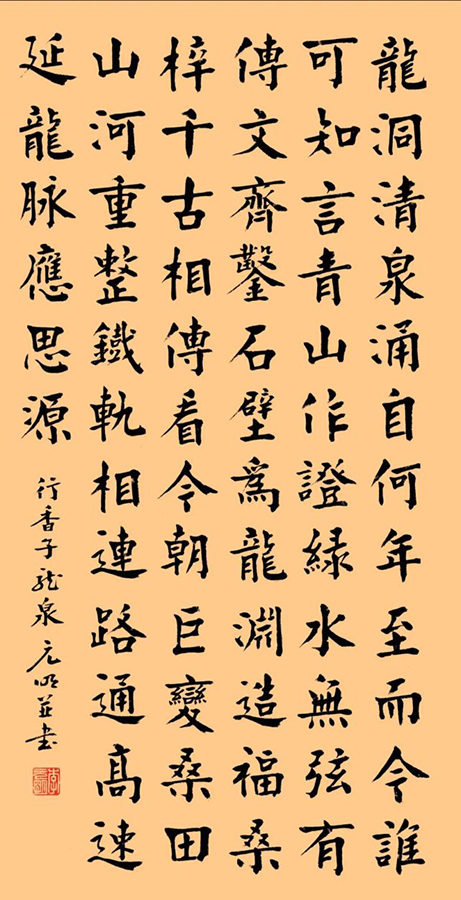 龍洞清泉涌自何年至而今誰
可知言青山作證緑水無弦有
傳文齊鑿石壁爲龍淵造福桑
梓千古相傳看今朝巨變桑田
山河重整鐵軌相連路通高速
延龍脉應思源
行香子龍泉 元明並书